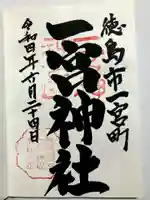 徳島市一宮町
一宮神社
令和四年六月二十四日